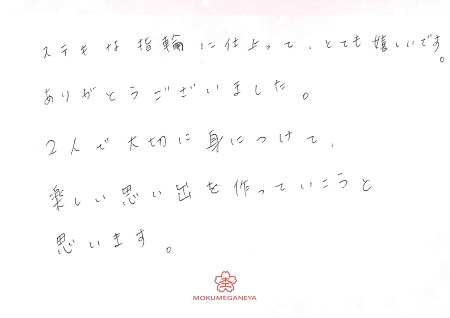 ステキな指輪に仕上って、とても嬉しいです。
ありがとうございました。
2人で大切に身につけて、
楽しい思い出を作っていこうと
思います。
MOKUMEGANEYA